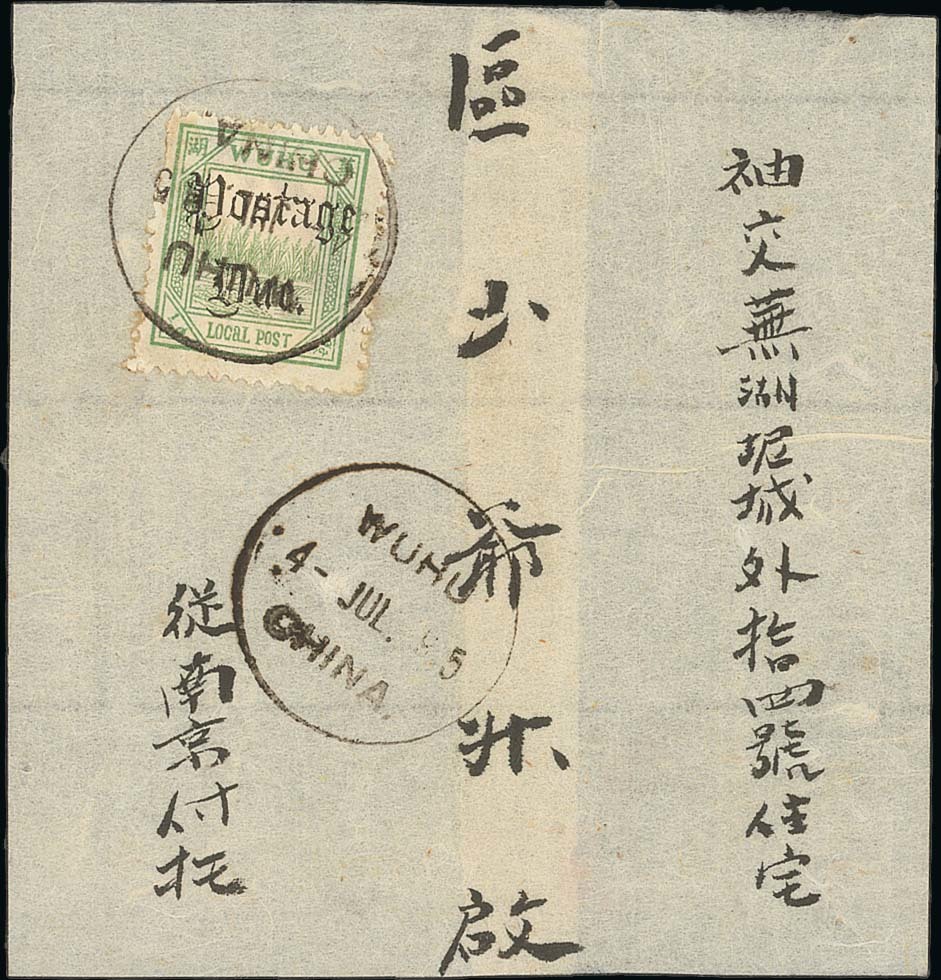 袖交蕪湖坭城外拾四號住宅
區少爺升啟
從南京付托
湖
Postage
Due.
LOCAL POST
CHINA
WUHU
4- JUL. 95
CHINA.